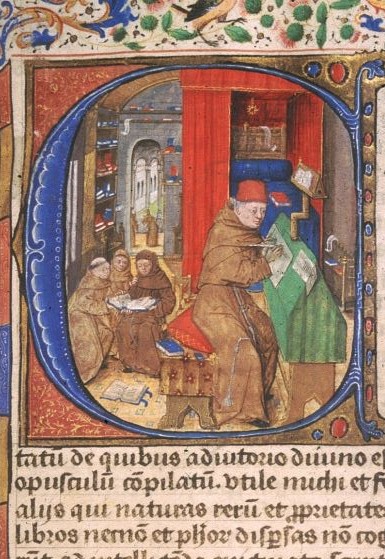 tatū de quibus adiutorio diuino e
opusculū cōpilatū. vtile michi et f
alijs qui naturas rerū et ꝓprietate
libros necnō et ph̄or disp̄sas nō cog